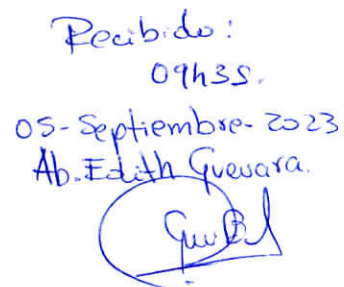 Recibido:
09h35.
05-Septiembre-2023
Ab. Edith Guevara.